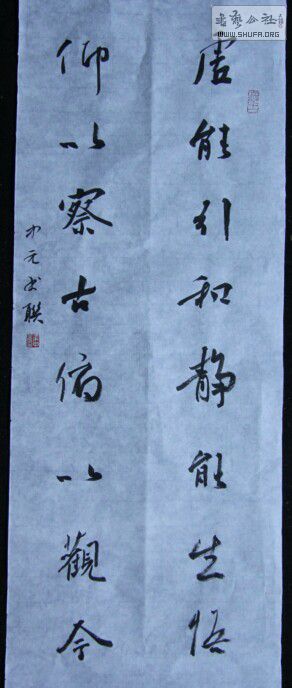 書藝公社
WWW.SHUFA.ORG
虚能引和静能生悟
仰以察古俯以觀今
元书联